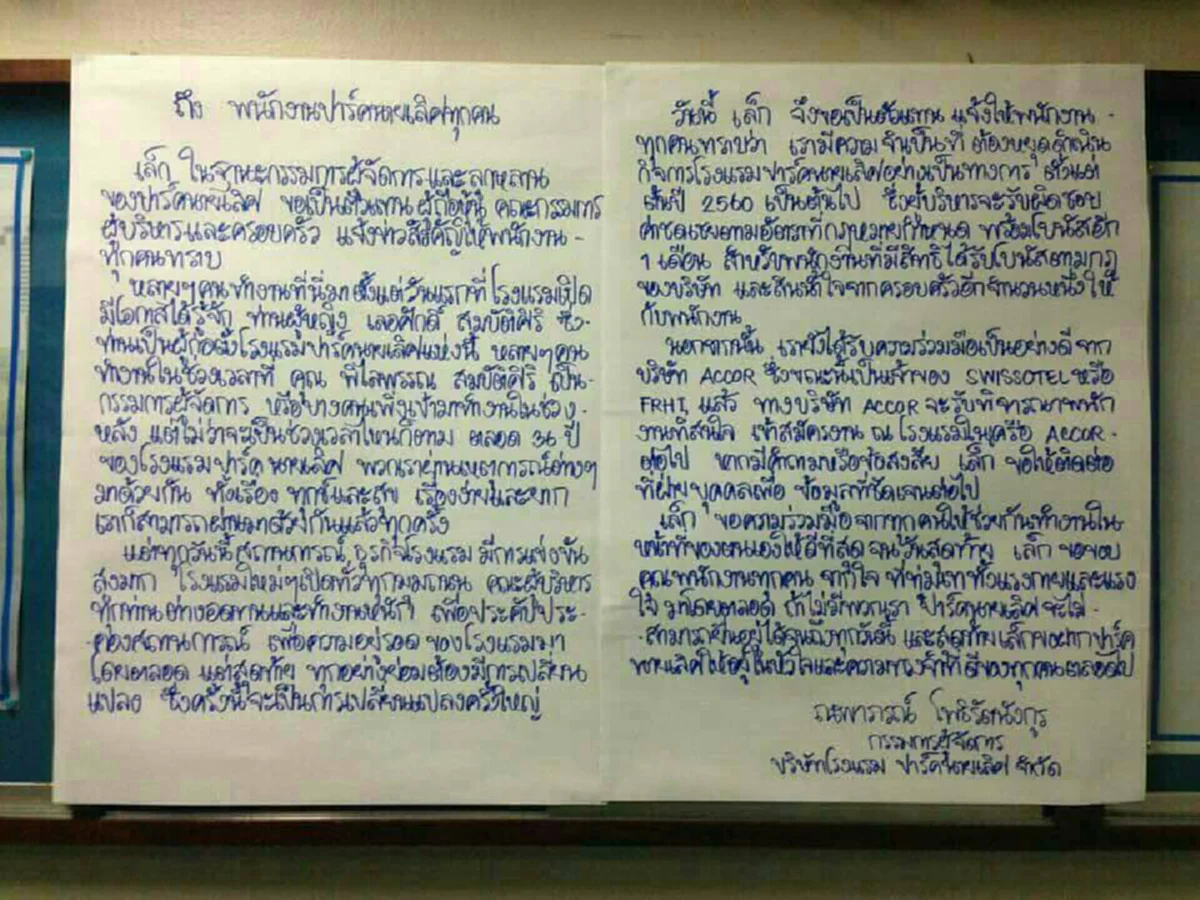 ถึง พนักงานปาร์คนายเลิศทุกคน
เล็ก ในฐานะกรรมการผู้จัดการและลูกหลาน
ของปาร์คนายเลิศ ขอเป็นตัวแทน ผู้ถือหุ้น คณะกรรมการ
ผู้บริหารและครอบครัว แจ้งข่าวสำคัญให้พนักงาน -
ทุกคนทราบ
หลายๆคนทำงานที่นี่มา ตั้งแต่วันแรกที่โรงแรมเปิด
มีโอกาสได้รู้จัก ท่านผู้หญิง เลอศักดิ์ สมบัติศิริ ซึ่ง-
ท่านเป็นผู้ก่อตั้งโรงแรมปาร์คนายเลิศแห่งนี้ หลายๆคน
ทำงานในช่วงเวลาที่ คุณ พิไลพรรณ สมบัติศิริ เป็น-
กรรมการผู้จัดการ หรือบางคนเพิ่งเข้ามาทำงานในช่วง
หลัง แต่ไม่ว่าจะเป็นช่วงเวลาไหนก็ตาม ตลอด 34 ปี
ของโรงแรมปาร์คนายเลิศ พวกเราผ่านเหตุการณ์ต่างๆ
มาด้วยกัน ทั้งเรื่อง ทุกข์และสุข เรื่องง่ายและยาก
เราก็สามารถผ่านมาด้วยกันแล้วทุกครั้ง
แต่ทุกวันนี้ สถานการณ์ ธุรกิจโรงแรม มีการแข่งขัน
สูงมาก โรงแรมใหม่ๆเปิดทั่วทุกมุมถนน คณะผู้บริหาร
ทุกท่าน ต่างอดทนและทำงานหนัก เพื่อประคับประ-
คองสถานการณ์ เพื่อความอยู่รอด ของโรงแรมมา
โดยตลอด แต่สุดท้าย ทุกอย่างย่อมต้องมีการเปลี่ยน
แปลง ซึ่งครั้งนี้จะเป็นการเปลี่ยนแปลงครั้งใหญ่
วันนี้ เล็ก จึงขอเป็นตัวแทน แจ้งให้พนักงาน -
ทุกคนทราบว่า เรามีความจำเป็นที่ ต้องหยุดดำเนิน
กิจการโรงแรมปาร์คนายเลิศอย่างเป็นทางการ ตั้งแต่
ต้นปี 2560 เป็นต้นไป ซึ่งผู้บริหารจะรับผิดชอบ
ค่าชดเชยตามอัตราที่กฎหมายกำหนด พร้อมโบนัสอีก
1 เดือน สำหรับพนักงานที่มีสิทธิได้รับโบนัสตามกฎ
ของบริษัท และสินน้ำใจจากครอบครัวอีกจำนวนหนึ่งให้
กับพนักงาน
นอกจากนั้น เรายังได้รับความร่วมมือเป็นอย่างดี จาก
บริษัท ACCOR ซึ่งขณะนี้เป็นเจ้าของ SWISSOTEL หรือ
FRHI แล้ว ทางบริษัท ACCOR จะรับพิจารณาพนัก
งานที่สนใจ เข้าสมัครงาน ณ โรงแรมในเครือ ACCOR -
ต่อไป หากมีคำถามหรือข้อสงสัย เล็ก ขอให้ติดต่อ
ที่ฝ่ายบุคคลเพื่อ ข้อมูลที่ชัดเจนต่อไป
เล็ก ขอความร่วมมือ จากทุกคนให้ช่วยกันทำงานใน
หน้าที่ของตนเองให้ดีที่สุด จนวันสุดท้าย เล็ก ขอขอบ
คุณพนักงานทุกคน จากใจ ที่ทุ่มเท ทั้งแรงกายและแรง
ใจ มาโดยตลอด ถ้าไม่มีพวกเรา ปาร์คนายเลิศ จะไม่ -
สามารถยืนอยู่ได้จนถึงทุกวันนี้ และสุดท้าย เล็กขอฝากปาร์ค
นายเลิศให้อยู่ในหัวใจและความทรงจำที่ดีของทุกคนตลอดไป
ณพาภรณ์ โพธิรัตนังกูร
กรรมการผู้จัดการ
บริษัทโรงแรม ปาร์คนายเลิศ จำกัด